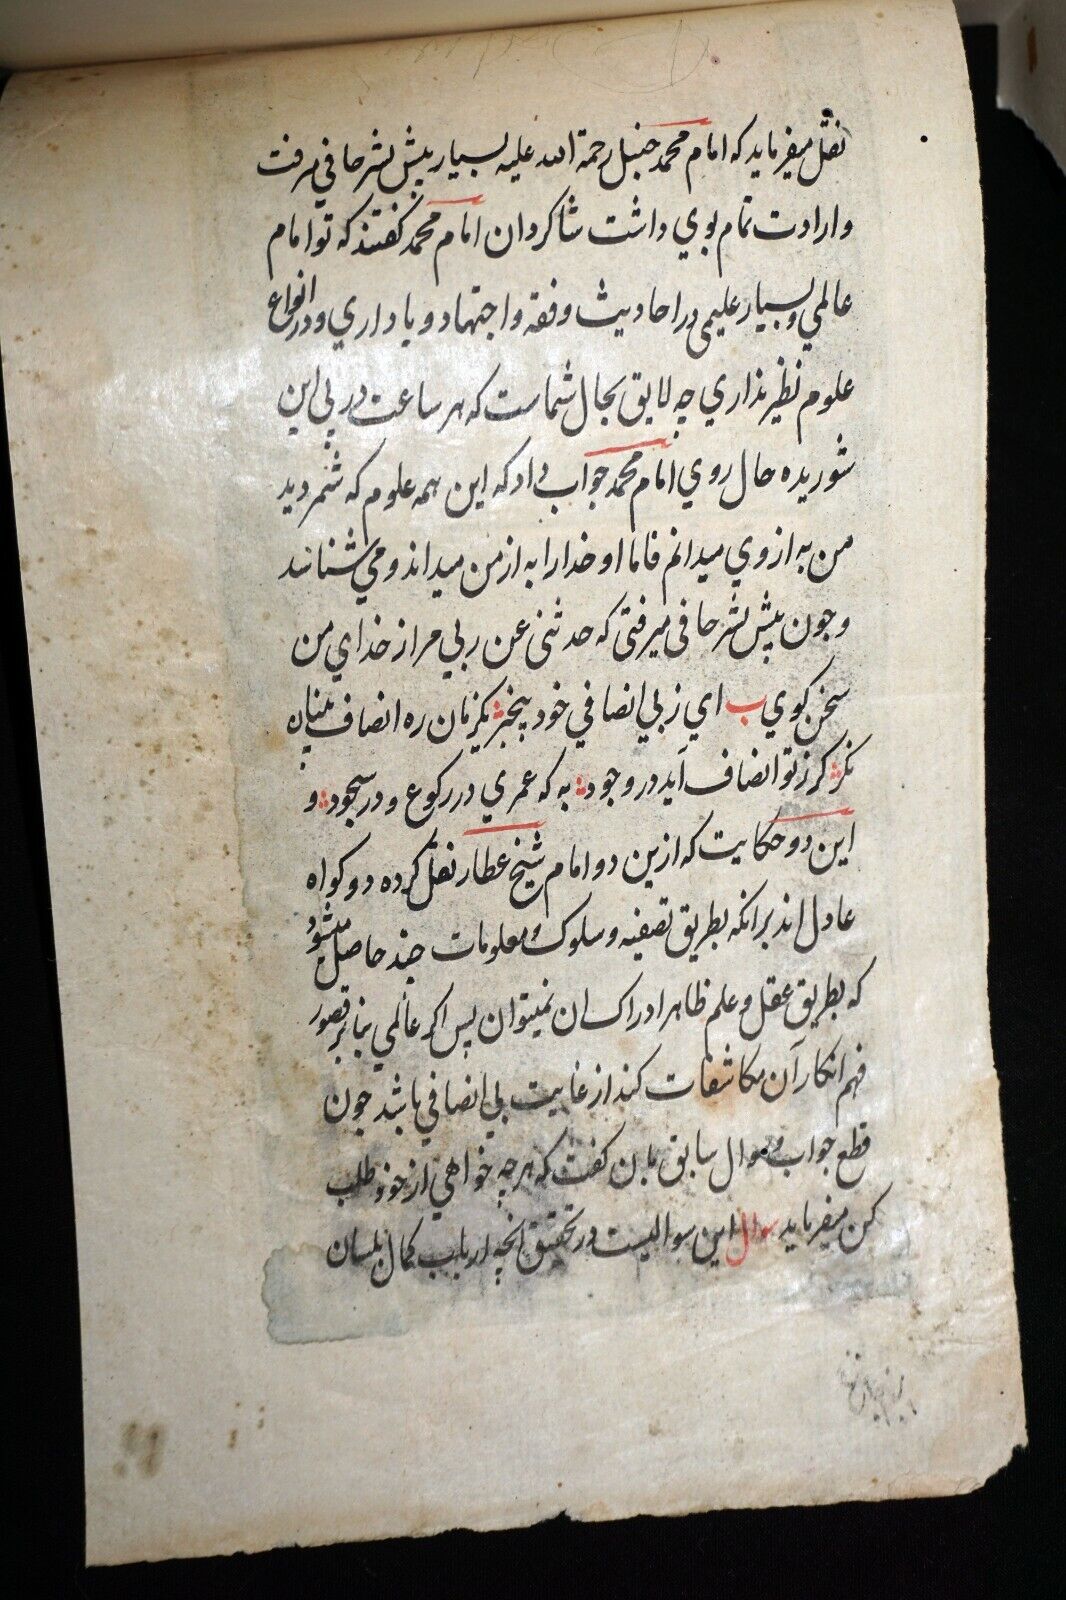 نقل میفرماید که امام محمد حنبل رحمة الله علیه بسیار پیش بشر حافی میرفت
و ارادت تمام بوی داشت شاکردان امام محمد کفتند که تو امام
عالمی و بسیار علیمی در احادیث و فقه و اجتهاد و یاد داری و در انواع
علوم نظیر نداری چه لایق بحال شماست که هر ساعت در پی این
شوریده حال روی امام محمد جواب داد که این همه علوم که شمردید
من به از وی میدانم فاما او خدا را به از من میداند و می شناسد
و چون پیش بشر حافی میرفتی که حدثنی عن ربی مرا از خدای من
سخن کوی ب ای ز بی انصافی خود بیخبر یکزمان ره انصاف
نکر کر ز تو انصاف آید در وجود به که عمری در رکوع و در سجود و
این دو حکایت که ازین دو امام شیخ عطار نقل کرده دو کواه
عادل اند بر انکه بطریق تصفیه و سلوک معلومات چند حاصل میشود
که بطریق عقل و علم ظاهر ادراک ان نمیتوان پس اکر عالمی بنا بر قصور
فهم انکار آن مکاشفات کند از غایت بی انصافی باشد چون
قطع جواب سوال سابق بان کفت که هر چه خواهی از خود طلب
کن میفرماید سوال این سوالیست در تحقیق آنچه ارباب کمال بلسان